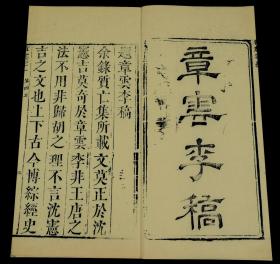 章雲李稿
題章雲李稿
余錄質亡集所載文莫正於沈
憲吉莫奇於章雲李非王唐之
法不用非歸胡之理不言沈憲
吉之文也上下古今博綜經史